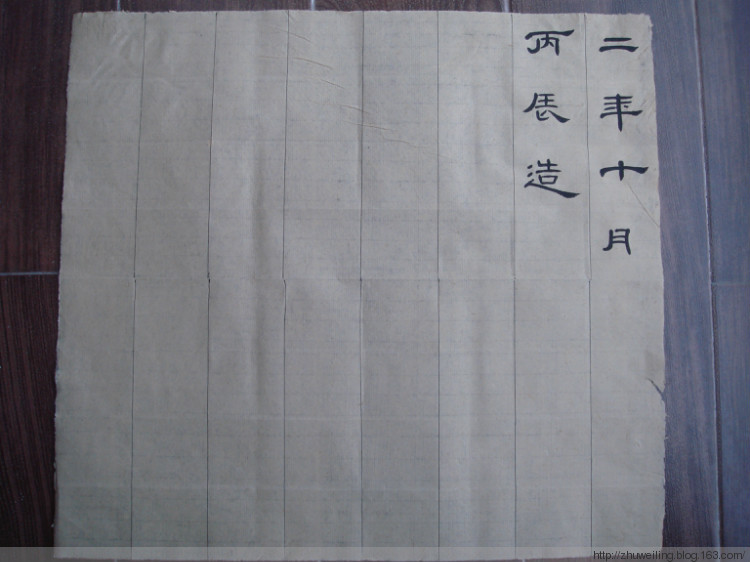 二年十月
丙辰造
http://zhuweiling.blog.163.com/